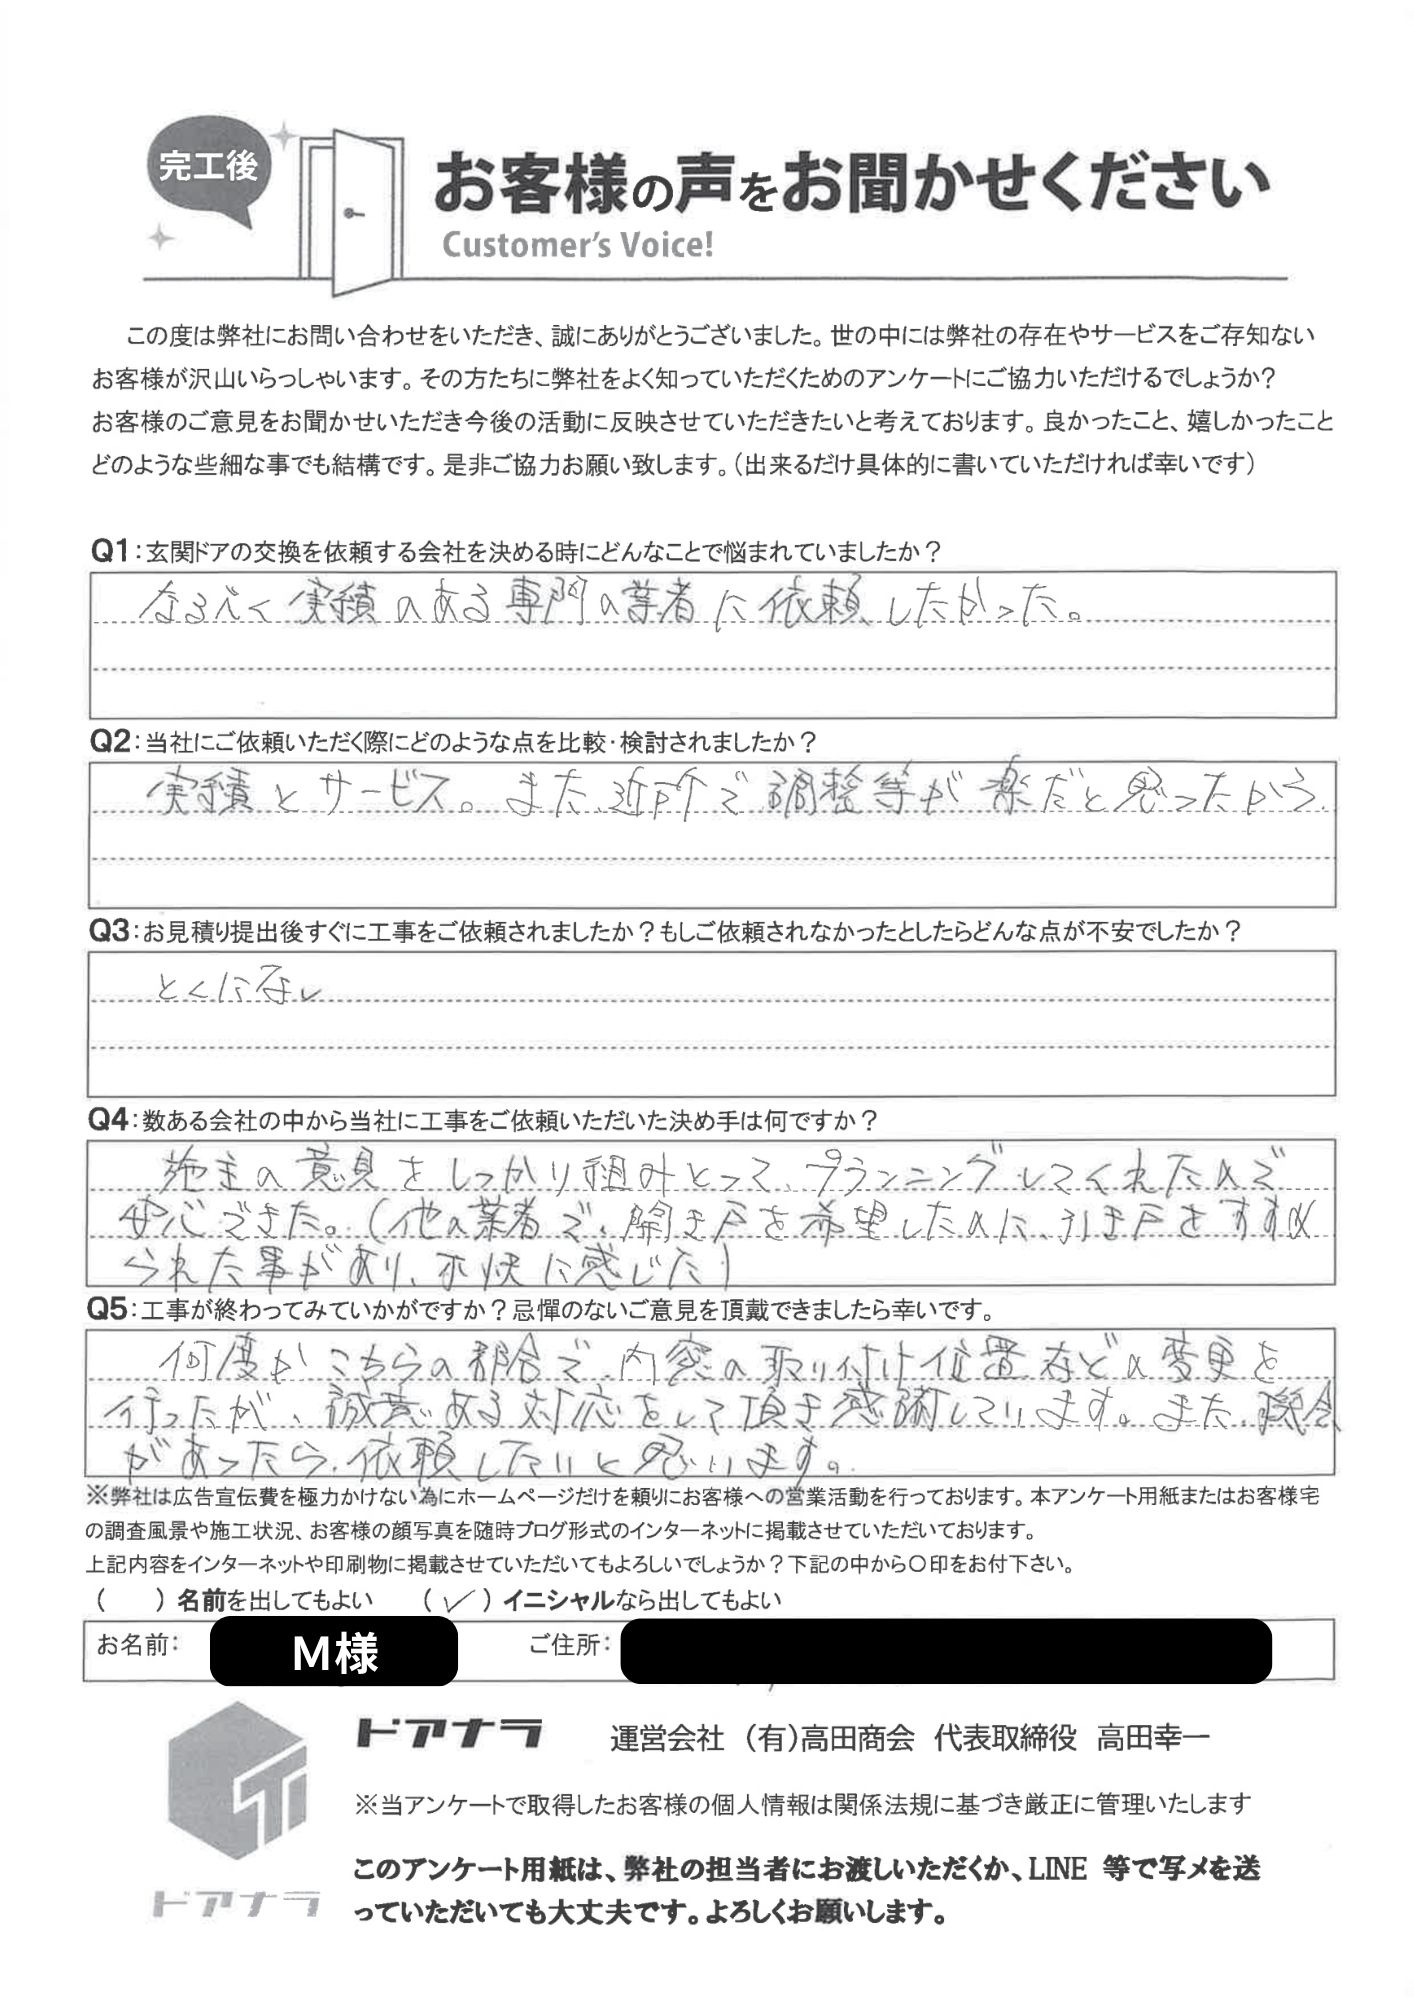 完工後
お客様の声をお聞かせください
Customer's Voice!
この度は弊社にお問い合わせをいただき、誠にありがとうございました。世の中には弊社の存在やサービスをご存知ない
お客様が沢山いらっしゃいます。その方たちに弊社をよく知っていただくためのアンケートにご協力いただけるでしょうか?
お客様のご意見をお聞かせいただき今後の活動に反映させていただきたいと考えております。良かったこと、嬉しかったこと
どのような些細な事でも結構です。是非ご協力お願い致します。(出来るだけ具体的に書いていただければ幸いです)
Q1:玄関ドアの交換を依頼する会社を決める時にどんなことで悩まれていましたか?
なるべく実績のある専門の業者に依頼したかった。
Q2:当社にご依頼いただく際にどのような点を比較・検討されましたか?
実績とサービス。また、近所で調整等が楽だと思ったから.
Q3:お見積り提出後すぐに工事をご依頼されましたか?もしご依頼されなかったとしたらどんな点が不安でしたか?
とくになし
Q4:数ある会社の中から当社に工事をご依頼いただいた決め手は何ですか?
施主の意見をしっかり組みとって、プランニングしてくれたので
安心できた。(他の業者で、開き戸を希望したのに、引き戸をすすめ
られた事があり、不快に感じた)
Q5:工事が終わってみていかがですか?忌憚のないご意見を頂戴できましたら幸いです。
何度かこちらの都合で、内窓の取り付け位置などの変更を
行ったが、誠意ある対応をして頂き感謝しています。また、機会
があったら、依頼したいと思います。
※弊社は広告宣伝費を極力かけない為にホームページだけを頼りにお客様への営業活動を行っております。本アンケート用紙またはお客様宅
の調査風景や施工状況、お客様の顔写真を随時ブログ形式のインターネットに掲載させていただいております。
上記内容をインターネットや印刷物に掲載させていただいてもよろしいでしょうか?下記の中から〇印をお付下さい。
(　　)名前を出してもよい　　(✓)イニシャルなら出してもよい
お名前: M様　ご住所:
ドアナラ　運営会社 (有)高田商会 代表取締役 高田幸一
※当アンケートで取得したお客様の個人情報は関係法規に基づき厳正に管理いたします
ドアナラ
このアンケート用紙は、弊社の担当者にお渡しいただくか、LINE 等で写メを送
っていただいても大丈夫です。よろしくお願いします。